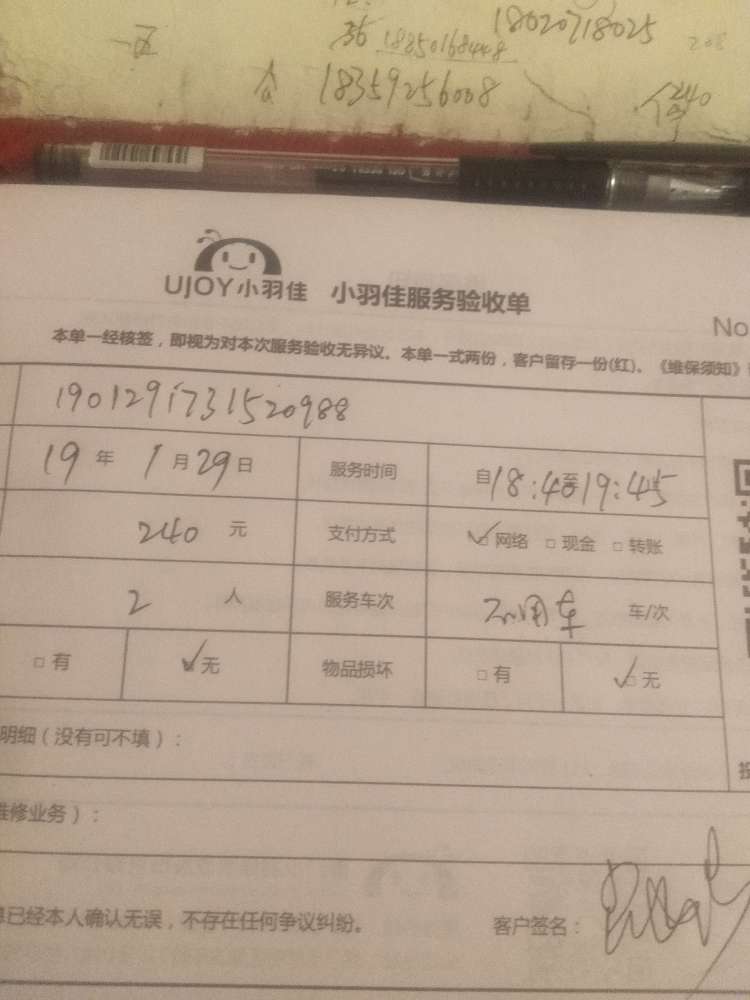 36 18850168448 18020718025
18359256008 240
UJOY小羽佳 小羽佳服务验收单
No
本单一经核签，即视为对本次服务验收无异议。本单一式两份，客户留存一份(红)。《维保须知》
1901291731520988
19年1月29日 服务时间 自18:40至19:45
240元 支付方式 网络 现金 转账
2人 服务车次 不用车 车/次
有 无 物品损坏 有 无
明细（没有可不填）：
维修业务）：
息已经本人确认无误，不存在任何争议纠纷。 客户签名：